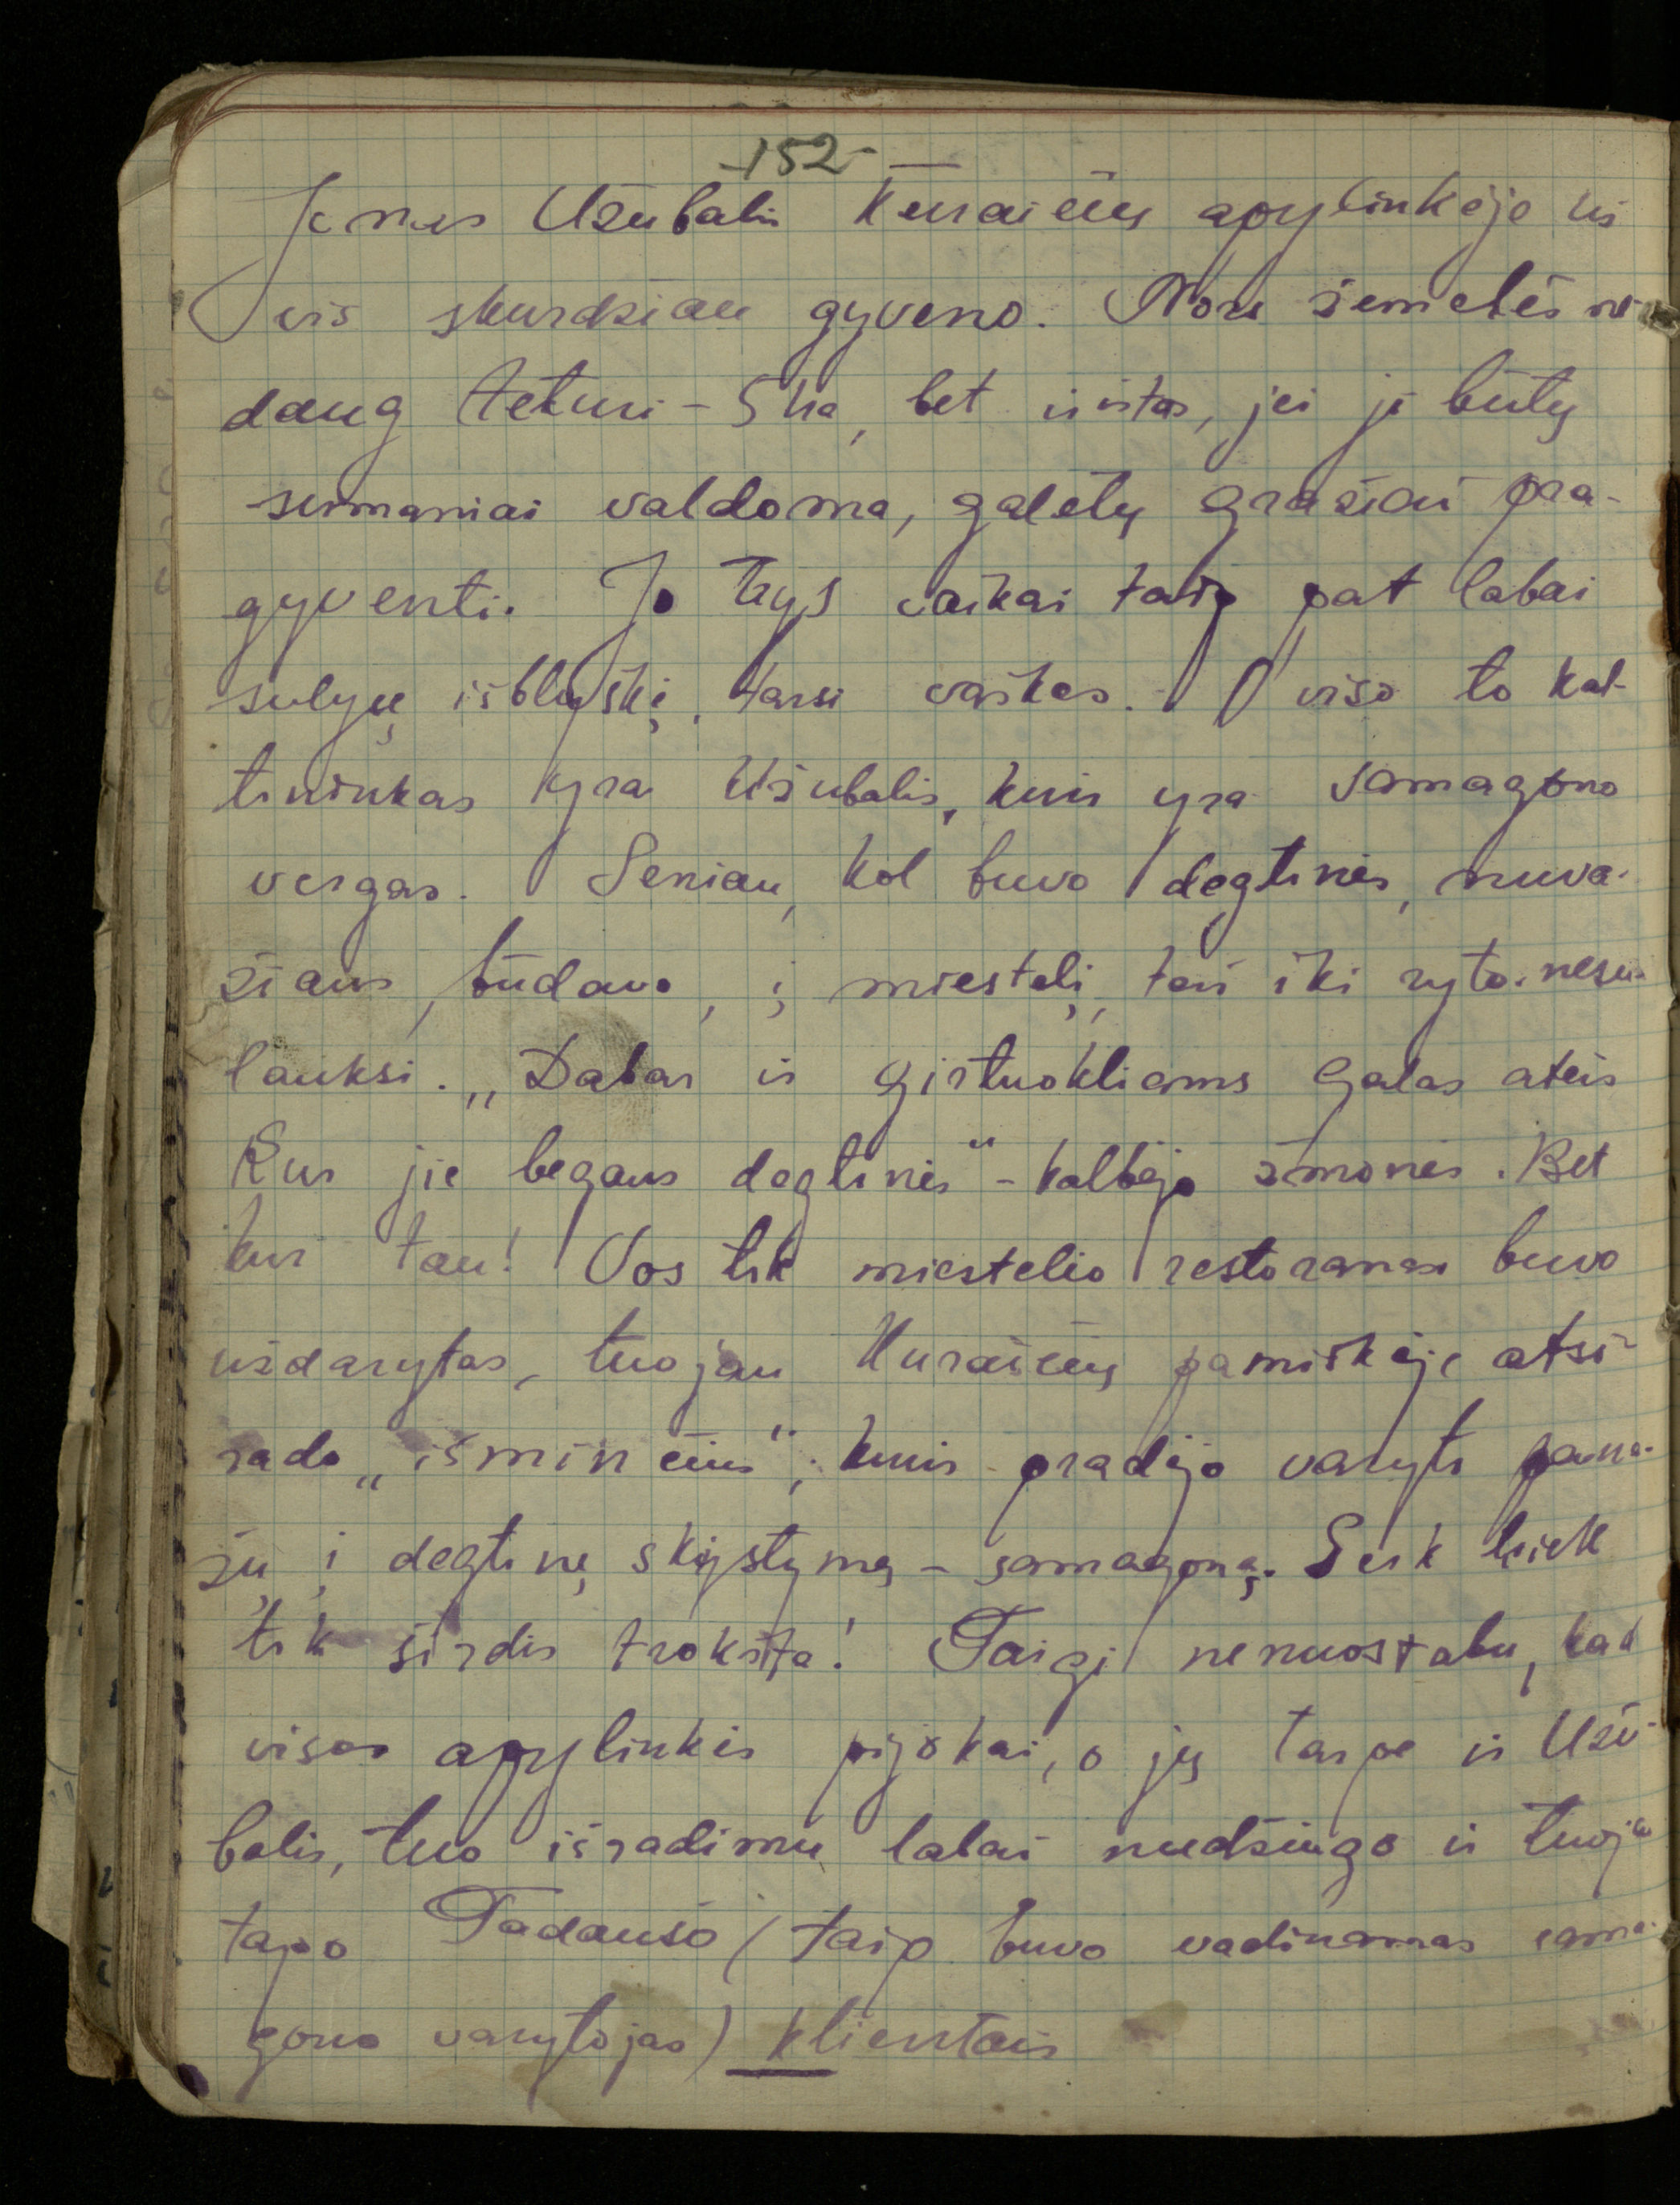 -152-
Jonas Užubalis Kuraičių apylinkėje vis
vis skurdžiau gyveno. Nors žemelės ne-
daug teturi - 5 ha, bet vistas, jei ji būtų
sumaniai valdoma, galėtų gražiai pra-
gyventi. Jo trys vaikai taip pat labai
sulysę, išblyškę, tarsi vaškas. O viso to kal-
tininkas yra Užubalis, kuris yra samagono
vergas. Seniau, kol buvo degtinės, nuva-
žiavus, būdavo, į miestelį, tai iki ryto nesu-
lauksi. „Dabar ir girtuokliams galas ateis
Kur jie begaus degtinės" - kalbėjo žmonės. Bet
kur tau! Vos tik miestelio restoranas buvo
uždarytas, tuojau Kuraičių pamiškėje atsi-
rado „išminčius", kuris pradėjo varyti pana-
šų į degtinę skystymą - samagoną. Gerk kiek
tik širdis trokšta! Taigi nenuostabu, kad
visos apylinkės pijokai, o jų tarpe ir Užu-
balis, tuo išradimu labai nudžiugo ir tuojau
tapo Tadaušo (taip buvo vadinamas sama-
gono varytojas) klientais